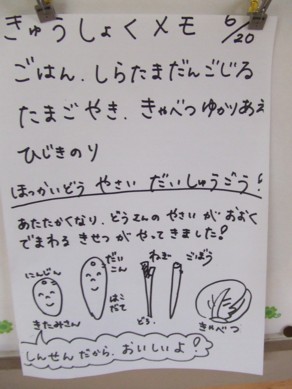 きゅうしょくメモ 6/20
ごはん.しらたまだんごじる
たまごやき.きゃべつゆかりあえ
ひじきのり
ほっかいどう やさい だいしゅうごう!
あたたかくなり、どうさんの やさい が おおく
でまわる きせつ が やってきました!
にんじん
きたみさん
だいこん
はこだて
ねぎ
ごぼう
きゃべつ
しんせんだから、おいしいよ!